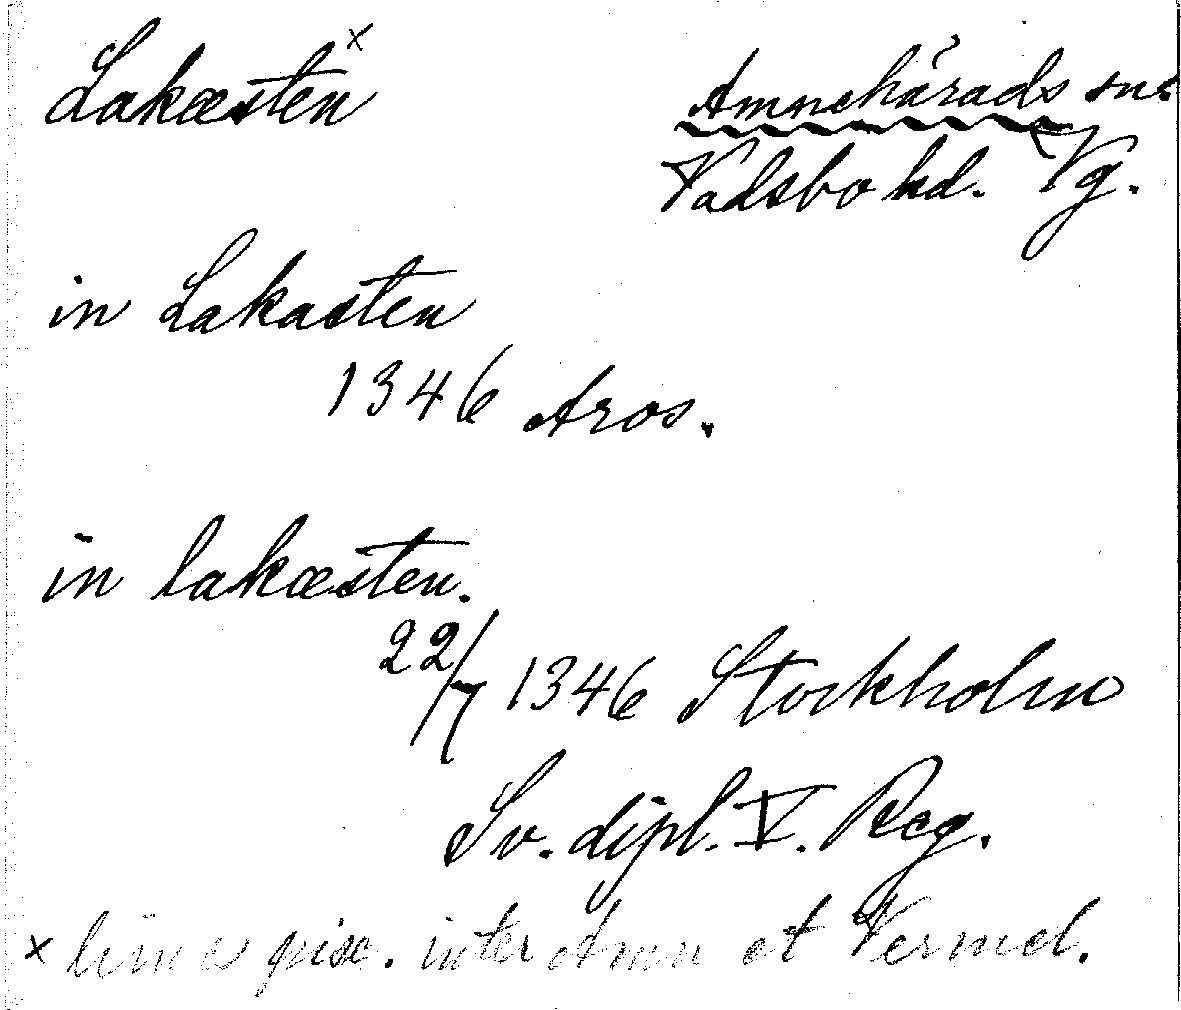 Lakæsten x
Amnehärads sn.
Vadsbo hd. Vg.
in Lakasten
1346 Aros.
in lakæsten.
22/7 1346 Stockholm
Sv. dipl. V. Reg.
x inter Amn et Vermel.